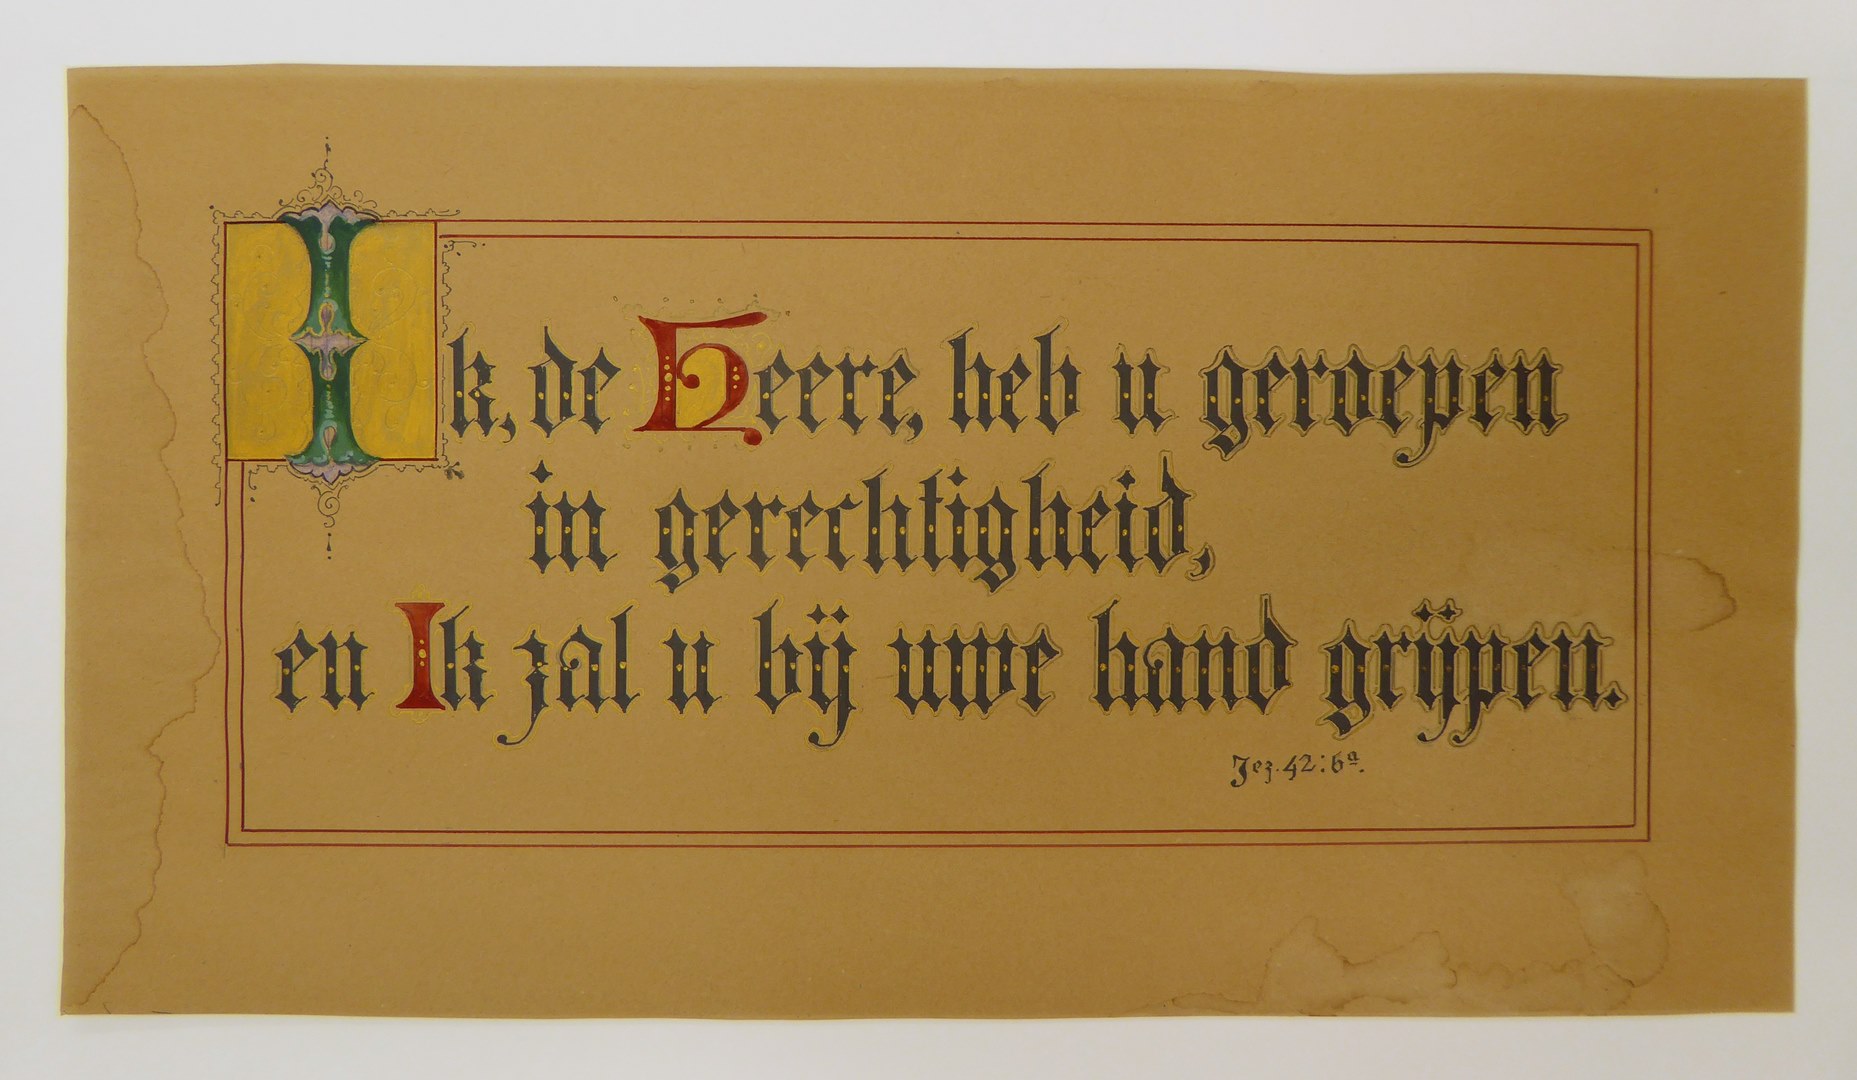 Ik, de Heere, heb u geroepen
in gerechtigheid,
en Ik zal u bij uwe hand grijpen.
Jez. 42:6a.